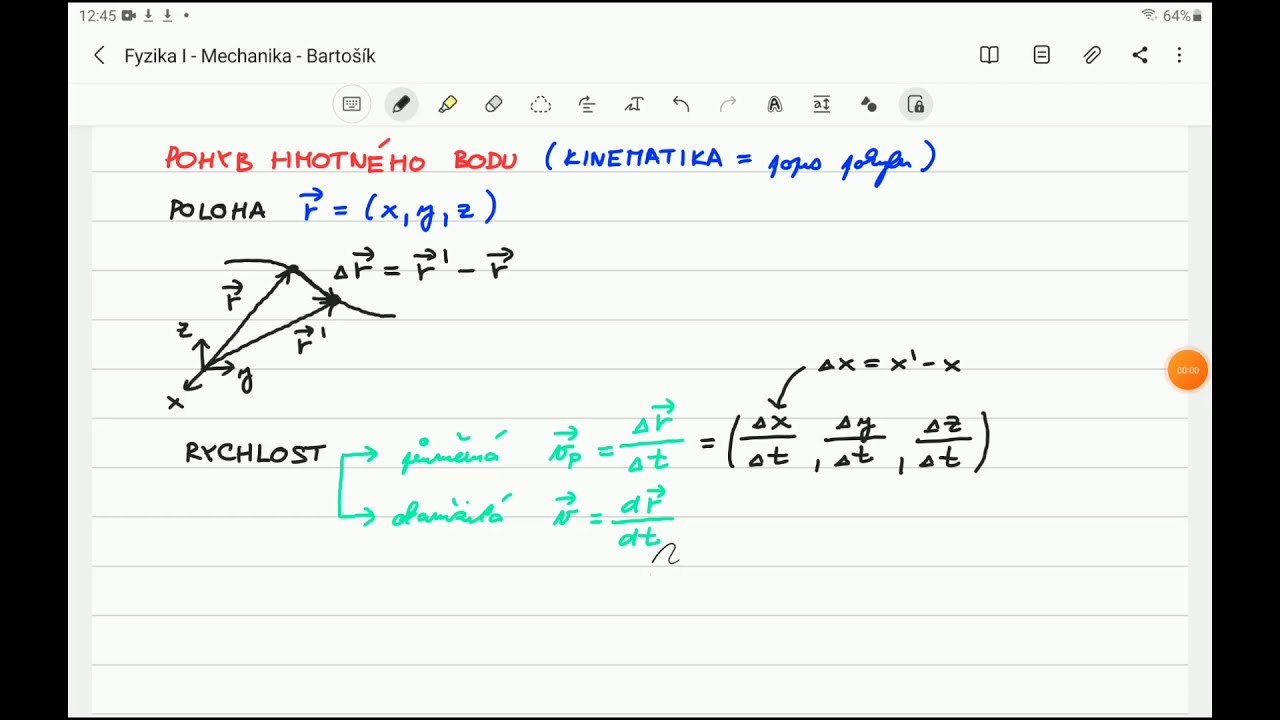 12:45 64%
Fyzika I - Mechanika - Bartošík
POHYB HMOTNÉHO BODU (KINEMATIKA = popis pohybu)
POLOHA r⃗ = (x, y, z)
Δr⃗ = r⃗' - r⃗
r⃗
r⃗'
z
y
x
Δx = x' - x
00:00
RYCHLOST průměrná v⃗p = Δr⃗/Δt = (Δx/Δt, Δy/Δt, Δz/Δt)
okamžitá v⃗ = dr⃗/dt